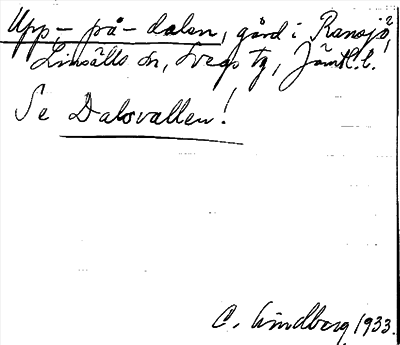 Upp-på-dalen, gård i Ransjö,
Linsälls sn, Svegs tg, Jämtl. l.
Se Dalsvallen!
C. Lindberg 1933.